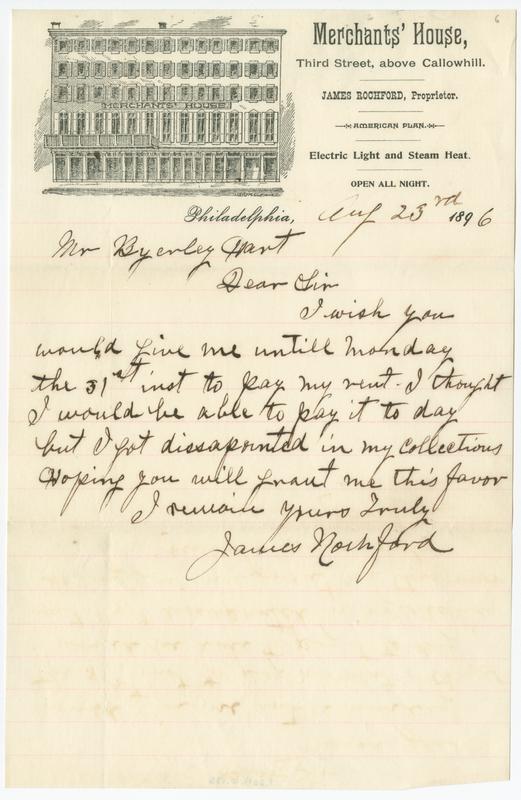 6
Merchants' House,
Third Street, above Callowhill.
JAMES ROCHFORD, Proprietor.
AMERICAN PLAN.
Electric Light and Steam Heat.
OPEN ALL NIGHT.
MERCHANTS' HOUSE.
Philadelphia, Aug 23rd 1896
Mr Byerley Hart
Dear Sir
I wish you
would give me untill Monday
the 31st inst to pay my rent. I thought
I would be able to pay it to day
but I got dissapointed in my collections
Hoping you will grant me this favor
I remain yours Truly
James Rochford